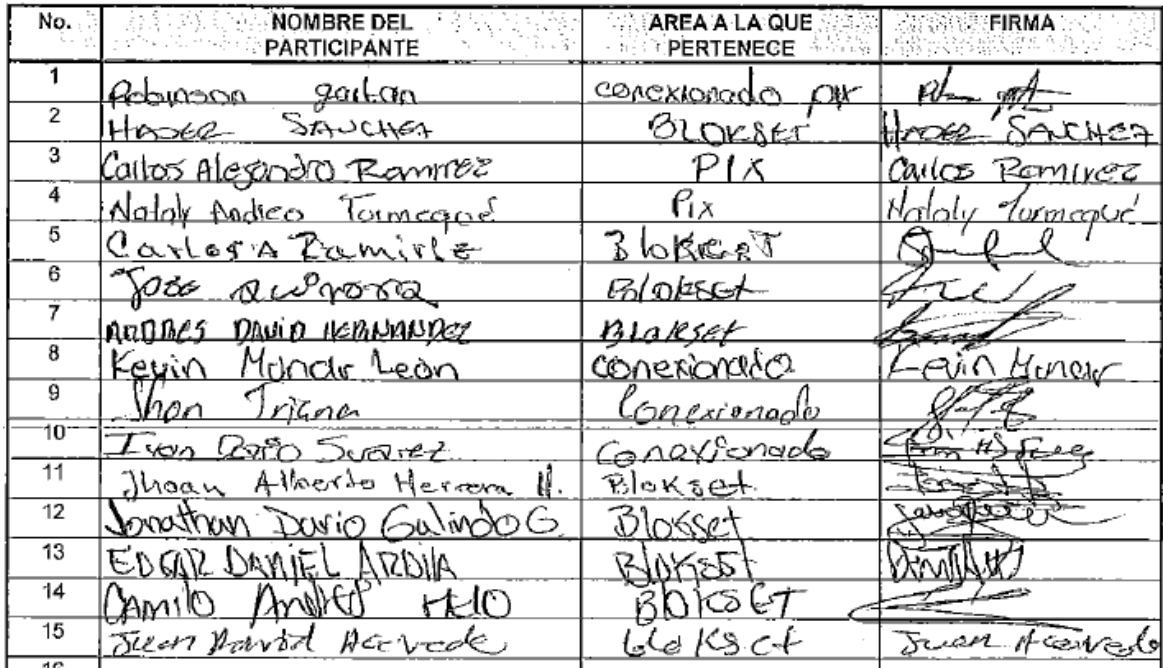 No. NOMBRE DEL PARTICIPANTE AREA A LA QUE PERTENECE FIRMA
1 Robinson gaitan conexionado pix
2 HADER SANCHEZ BLOKSET HADER SANCHEZ
3 Carlos Alejandro Ramirez PIX Carlos Ramirez
4 Nataly Andrea Turmequé Pix Nataly Turmequé
5 Carlos A Ramirez Blokset
6 Jose Blokset
7 ANDRES DAVID HERNANDEZ Blokset
8 Kevin Munar León conexionado Kevin Munar
9 Jhon Triana Conexionado
10 Ivan Dario Suarez Conexionado
11 Jhoan Alberto Herrera H. Blokset
12 Jonathan Dario Galindo G. Blokset
13 EDGAR DANIEL ARDILA Blokset
14 CAMILO Andres Blokset
15 Juan David Acevedo blokset Juan Acevedo
16